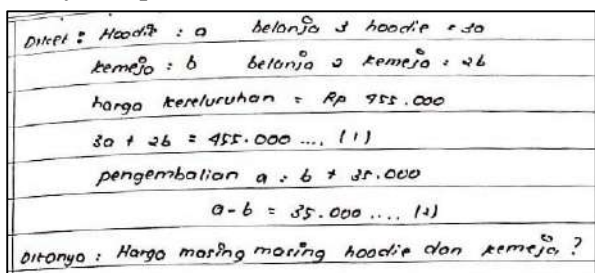 Diket : Hoodie : a belanja 3 hoodie = 3a
kemeja : b belanja 2 kemeja = 2b
harga keseluruhan = Rp 455.000
3a + 2b = 455.000 .... (1)
pengembalian a = b + 35.000
a - b = 35.000 .... (2)
Ditanya : Harga masing masing hoodie dan kemeja ?